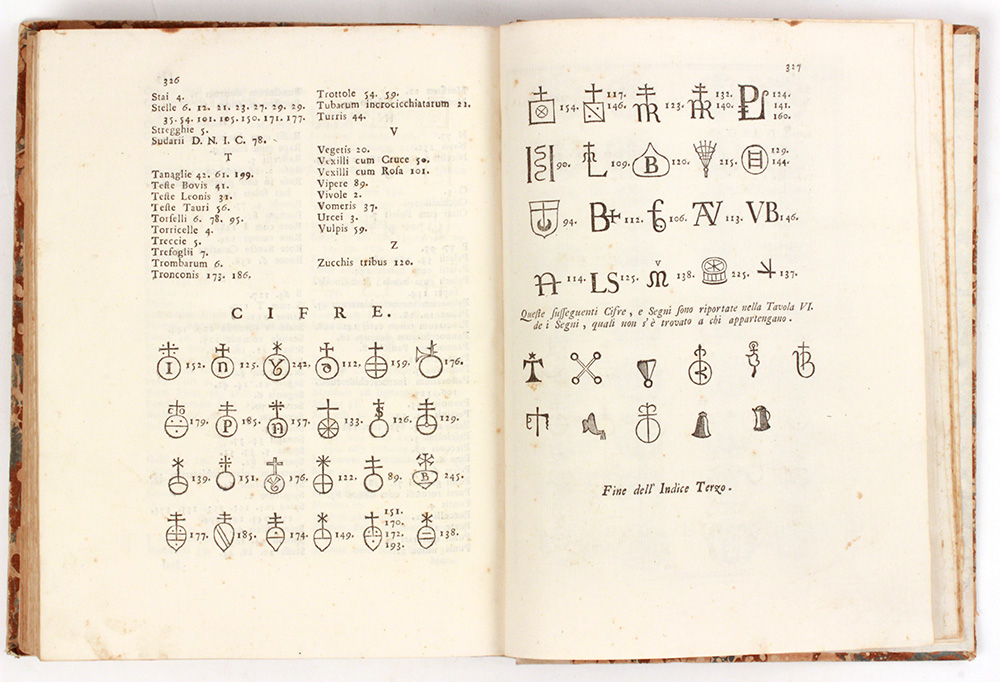 326
Stai 4.
Stelle 6. 12. 21. 23. 27. 29. 29.
35. 54. 101. 105. 150. 171. 177.
Stregghie 5.
Sudarii D. N. I. C. 78.
T
Tanaglie 42. 61. 199.
Teste Bovis 41.
Teste Leonis 31.
Teste Tauri 56.
Torselli 6. 78. 95.
Torricelle 4.
Treccie 5.
Trefoglii 7.
Trombarum 6.
Tronconis 173. 186.
Trottole 54. 59.
Tubarum incrocicchiatarum 21.
Turris 44.
V
Vegetis 20.
Vexilli cum Cruce 50.
Vexilli cum Rosa 101.
Vipere 89.
Vivole 2.
Vomeris 37.
Urcei 3.
Vulpis 59.
Z
Zucchis tribus 120.
CIFRE.
I 152. n 125. 242. 112. 159. 176.
179. P 185. n 157. 133. S 126. 129.
139. 151. 176. 122. 89. B 245.
177. 185. 174. 149. 151. 170. 172. 193. 138.
327
154. 117. 146. 123. 132. 140. 124. 141. 160.
90. 109. B 120. 215. 129. 144.
94. B 112. 106. 113. VB 146.
114. LS 125. 138. 225. 137.
Queste susseguenti Cifre, e Segni sono riportate nella Tavola VI.
de i Segni, quali non s'è trovato a chi appartengano.
Fine dell' Indice Terzo.